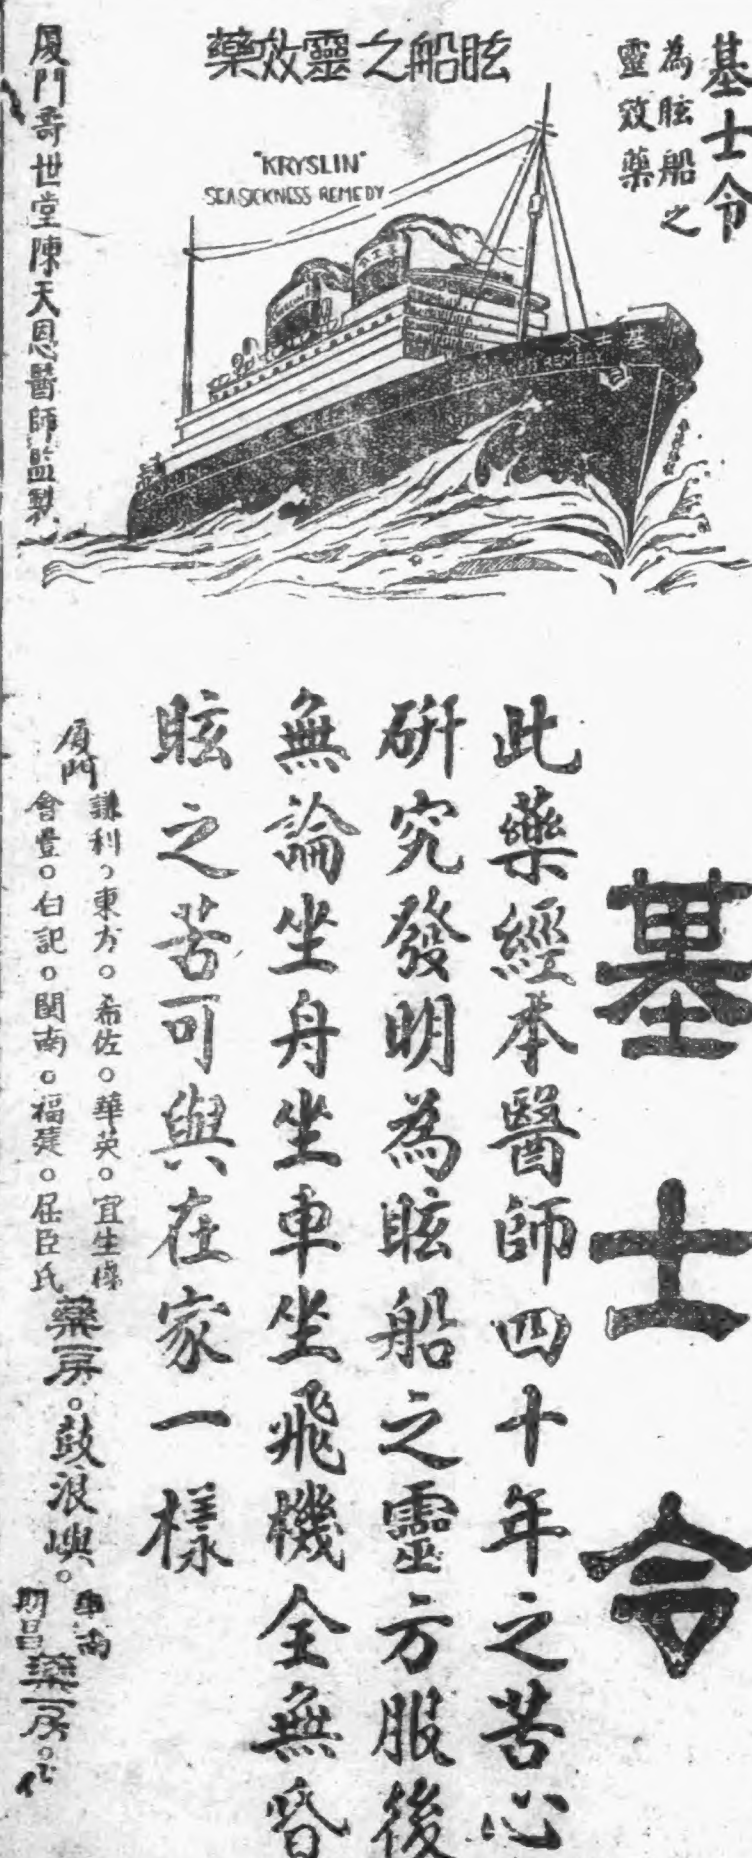 基士令
為眩船之
靈效藥
眩船之靈效藥
"KRYSLIN"
SEASICKNESS REMEDY
基士令
REMEDY
廈門壽世堂陳天恩醫師監製
基士令
此藥經本醫師四十年之苦心
研究發明為眩船之靈方服後
無論坐舟坐車坐飛機全無昏
眩之苦可與在家一樣
廈門
謙利。東方。希佐。華英。宜生
會豐。白記。閩南。福建。屈臣氏
藥房。鼓浪嶼。
明昌
藥房。